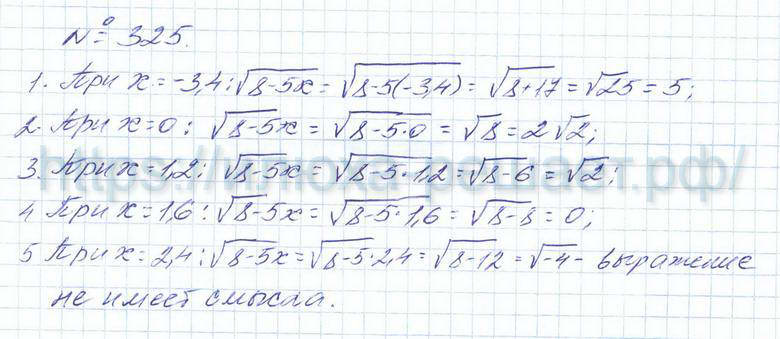 № 325.
1. При x = -3,4: √8-5x = √8-5(-3,4) = √8+17 = √25 = 5;
2. При x=0: √8-5x = √8-5·0 = √8 = 2√2;
3. При x=1,2: √8-5x = √8-5·1,2 = √8-6 = √2;
4 При x=1,6: √8-5x = √8-5·1,6 = √8-8 = 0;
5 При x=2,4: √8-5x = √8-5·2,4 = √8-12 = √-4 - выражение
не имеет смысла.